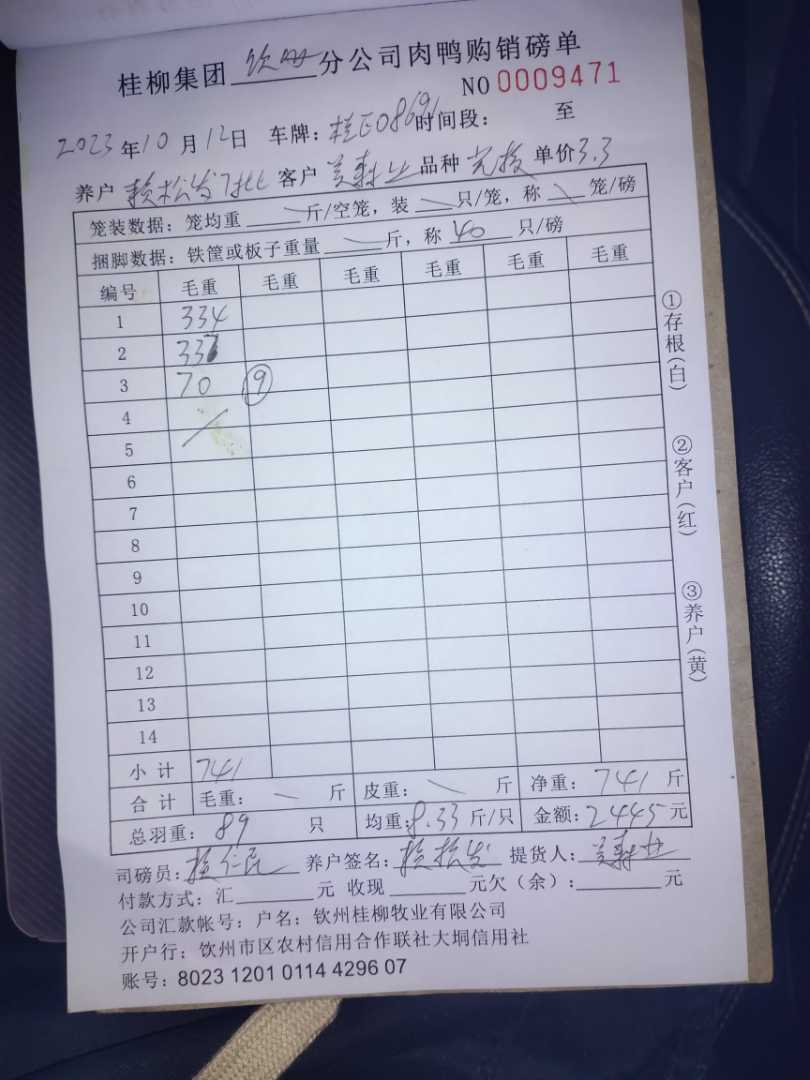 桂柳集团 钦州 分公司肉鸭购销磅单
NO 0009471
2023年10月12日 车牌：桂E08691 时间段： 至
养户 赖松发 客户 品种 单价3.3
笼装数据：笼均重 斤/空笼，装 只/笼，称 笼/磅
捆脚数据：铁筐或板子重量 斤，称 40 只/磅
编号 毛重 毛重 毛重 毛重 毛重 毛重
1 334
2 337
3 70 ⑨
4
5
6
7
8
9
10
11
12
13
14
小计 741
合计 毛重： 斤 皮重： 斤 净重：741斤
总羽重：89 只 均重：8.33斤/只 金额：2445元
司磅员： 养户签名：赖松发 提货人：
付款方式：汇 元 收现 元欠（余）： 元
公司汇款帐号：户名：钦州桂柳牧业有限公司
开户行：钦州市区农村信用合作联社大垌信用社
账号：8023 1201 0114 4296 07
①存根(白)
②客户(红)
③养户(黄)